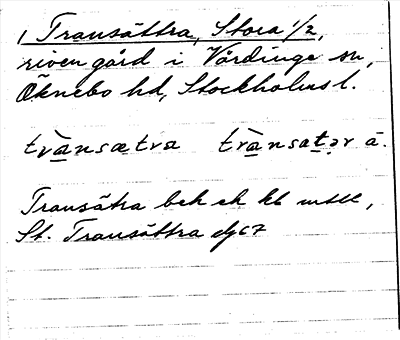 1 Transättra, Stora 1/2,
riven gård i Vårdinge sn,
Öknebo hd, Stockholms l.
trànsætra trànsatər ä.
Transätra bek ek kb mtll,
St. Transättra dj67